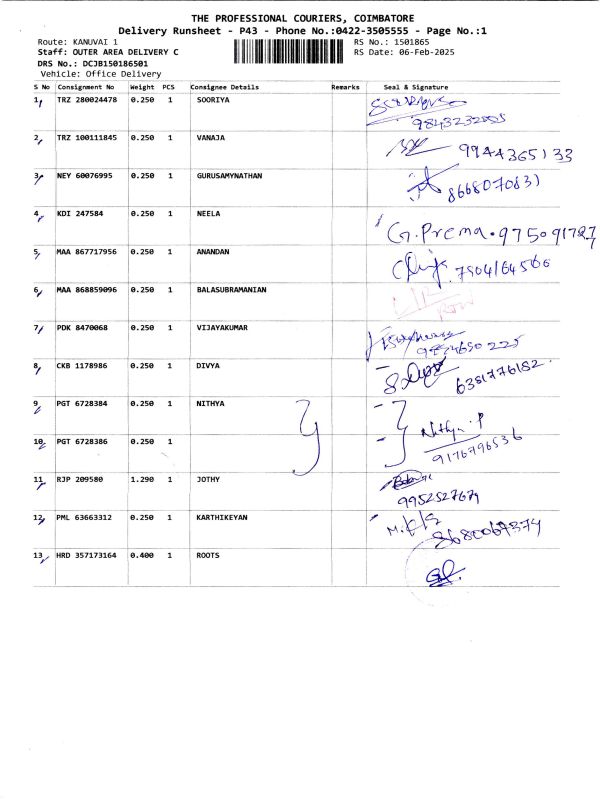 THE PROFESSIONAL COURIERS, COIMBATORE
Delivery Runsheet - P43 - Phone No.:0422-3505555 - Page No.:1
Route: KANUVAI 1 RS No.: 1501865
Staff: OUTER AREA DELIVERY C RS Date: 06-Feb-2025
DRS No.: DCJB150186501
Vehicle: Office Delivery
S No Consignment No Weight PCS Consignee Details Remarks Seal & Signature
1, TRZ 280024478 0.250 1 SOORIYA
2, TRZ 100111845 0.250 1 VANAJA 9944365133
3, NEY 60076995 0.250 1 GURUSAMYNATHAN
4, KDI 247584 0.250 1 NEELA G. Prema.
5, MAA 867717956 0.250 1 ANANDAN 7904164566
6, MAA 868859096 0.250 1 BALASUBRAMANIAN
7, PDK 8470068 0.250 1 VIJAYAKUMAR
8, CKB 1178986 0.250 1 DIVYA 6381776182
9, PGT 6728384 0.250 1 NITHYA Nithya . P
10, PGT 6728386 0.250 1 9176796536
11, RJP 209580 1.290 1 JOTHY
9952527679
12, PML 63663312 0.250 1 KARTHIKEYAN
8680069374
13, HRD 357173164 0.400 1 ROOTS